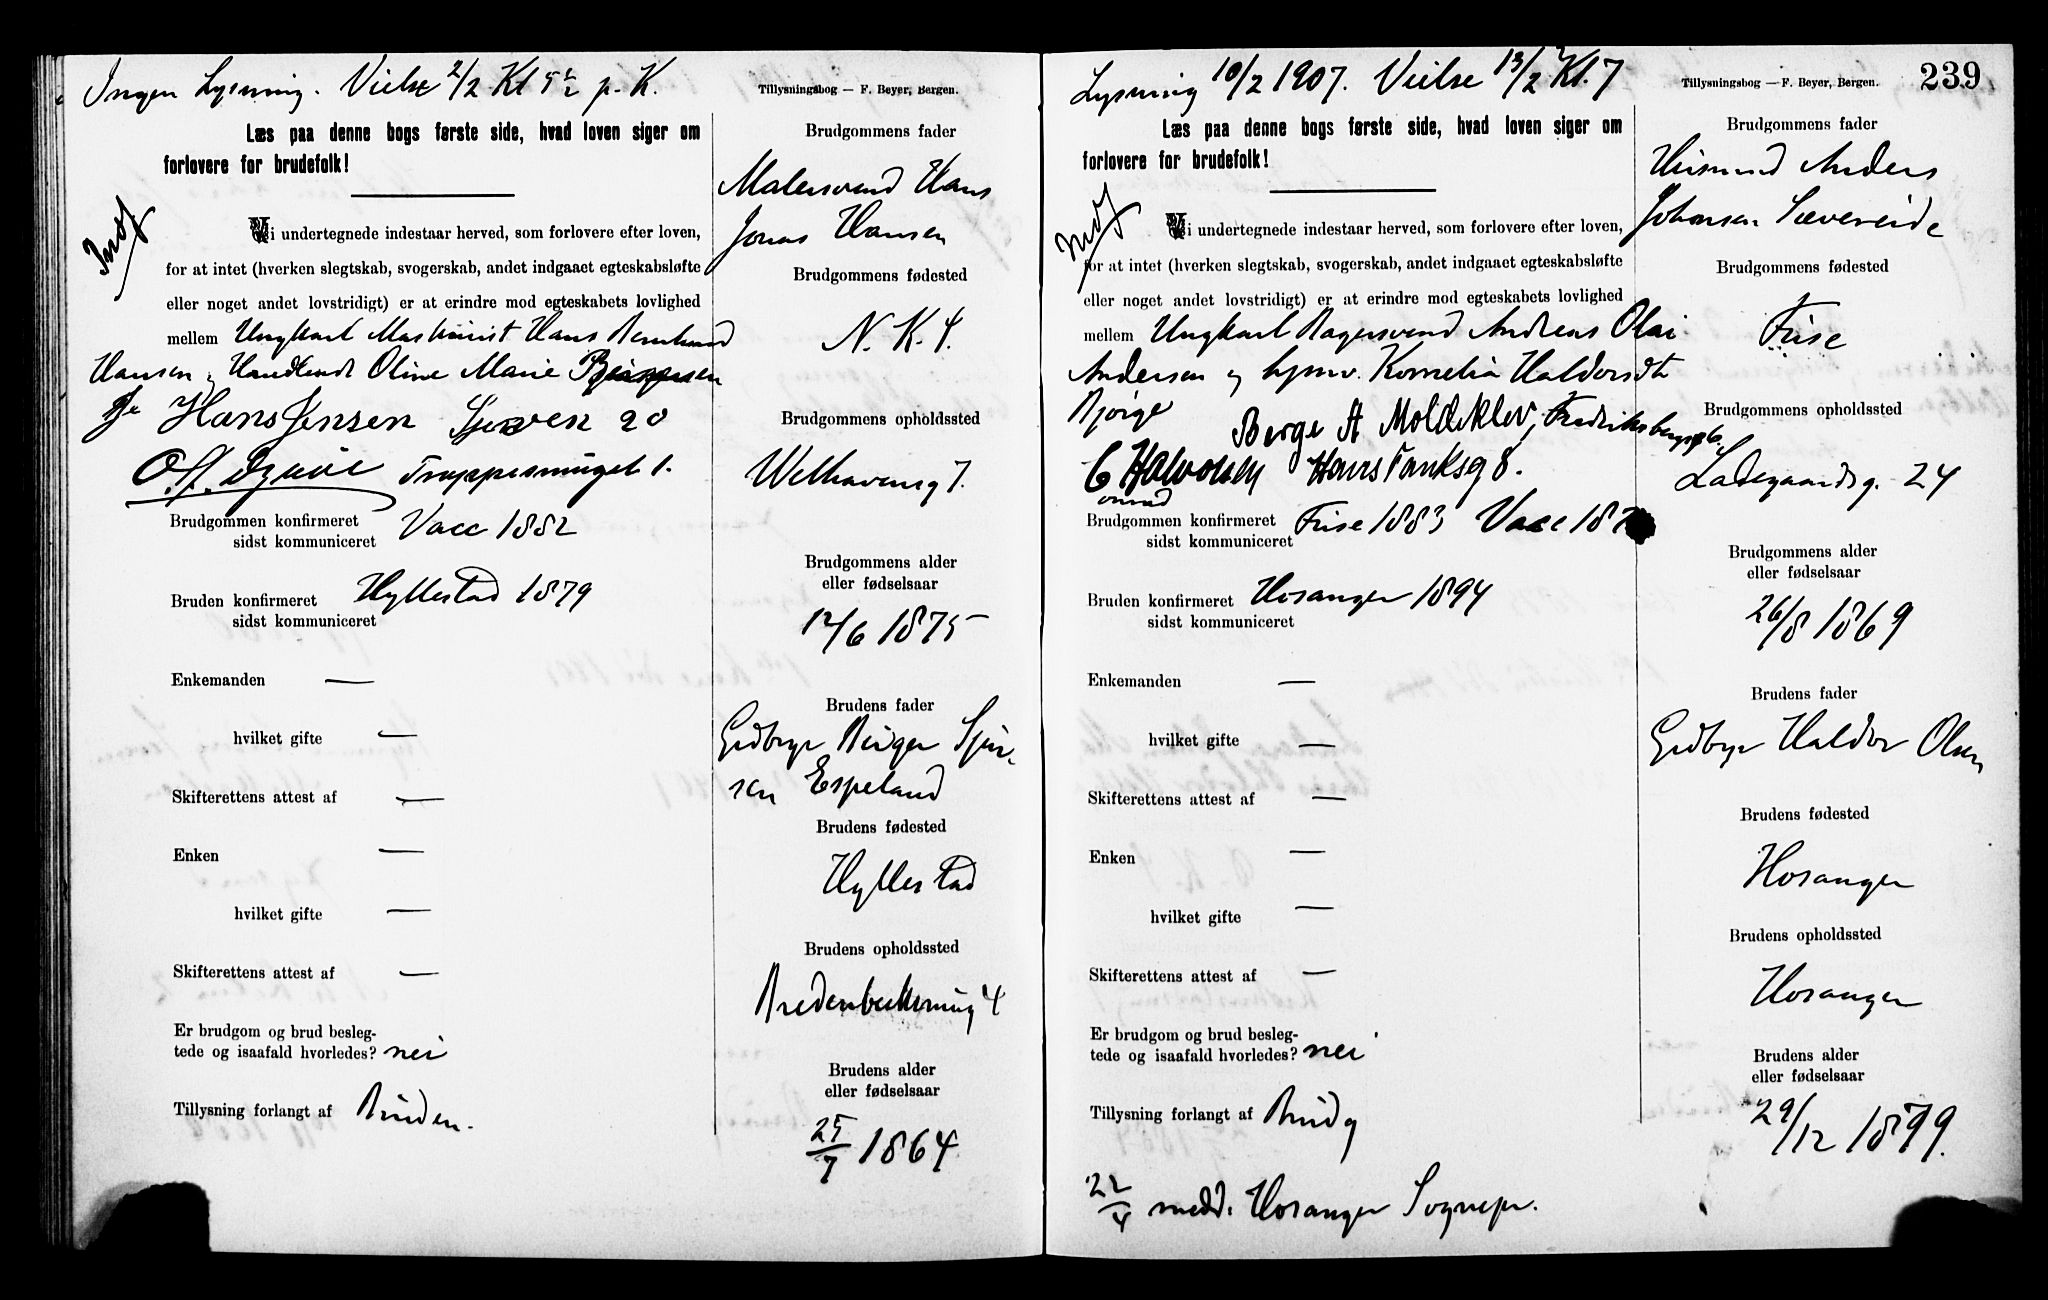 Ingen Lysning. Vielse 2/2 Kl 5½ p. K.
Tillysningsbog — F. Beyer, Bergen.
Læs paa denne bogs første side, hvad loven siger om
forlovere for brudefolk!
Indf
Vi undertegnede indestaar herved, som forlovere efter loven,
for at intet (hverken slegtskab, svogerskab, andet indgaaet egteskabsløfte
eller noget andet lovstridigt) er at erindre mod egteskabets lovlighed
mellem Ungkarl Maskinist Hans Bernhard
Hansen og Handlende Oline Marie
Hans Jensen 20
Trappesmuget 1.
Brudgommen konfirmeret Vacc 1882
sidst kommuniceret
Bruden konfirmeret Hyllestad 1879
sidst kommuniceret
Enkemanden —
hvilket gifte —
Skifterettens attest af —
Enken —
hvilket gifte —
Skifterettens attest af —
Er brudgom og brud besleg-
tede og isaafald hvorledes? nei
Tillysning forlangt af Bruden.
Brudgommens fader
Malersvend Hans
Jonas Hansen
Brudgommens fødested
N. K. 4.
Brudgommens opholdssted
Welhavensg 7.
Brudgommens alder
eller fødselsaar
12/6 1875
Brudens fader
Gedbygr Birger Sjur-
sen Espeland
Brudens fødested
Hyllestad
Brudens opholdssted
4
Brudens alder
eller fødselsaar
25/7 1864
Lysning 10/2 1907. Vielse 13/2 Kl. 7
Tillysningsbog — F. Beyer, Bergen.
239
Læs paa denne bogs første side, hvad loven siger om
forlovere for brudefolk!
Indf
Vi undertegnede indestaar herved, som forlovere efter loven,
for at intet (hverken slegtskab, svogerskab, andet indgaaet egteskabsløfte
eller noget andet lovstridigt) er at erindre mod egteskabets lovlighed
mellem Ungkarl Bagersvend Andreas Olai
Andersen og Kornelia Haldorsdtr
Bjørge
Berge A Moldeklev, Fredriksbergsg
C Halvorsen Hans Tanksg 8.
onrad
Brudgommen konfirmeret 1883 Vacc
sidst kommuniceret
Bruden konfirmeret Hosanger 1894
sidst kommuniceret
Enkemanden —
hvilket gifte —
Skifterettens attest af —
Enken —
hvilket gifte —
Skifterettens attest af —
Er brudgom og brud besleg-
tede og isaafald hvorledes? nei
Tillysning forlangt af Brudg
22/4 medd. Hosanger Sognepr.
Brudgommens fader
Husmand Anders
Johansen Sævereide
Brudgommens fødested
Brudgommens opholdssted
Ladegaardsg. 24
Brudgommens alder
eller fødselsaar
26/8 1869
Brudens fader
Gedbygr Haldor Olsen
Brudens fødested
Hosanger
Brudens opholdssted
Hosanger
Brudens alder
eller fødselsaar
29/12 1879.